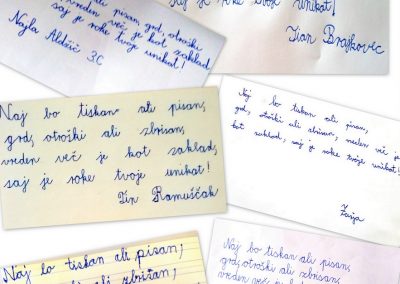 ali pisan, grd, otroški
vreden več je kot zaklad,
saj je roke tvoje unikat!
Najla Aldžić 3.C
saj je roke tvoje unikat!
Tian Brajkovec
Naj bo tiskan ali pisan,
grd, otroški ali zbrisan,
vreden več je kot zaklad,
saj je roke tvoje unikat!
Tin Ramuščak
Naj bo tiskan ali pisan,
grd, otroški ali zbrisan, vreden več je
kot zaklad, saj je roke tvoje unikat!
Zarja
Naj bo tiskan ali pisan,
ali zbrisan,
Naj bo tiskan ali pisan,
grd, otroški ali zbrisan,
vreden več je kot